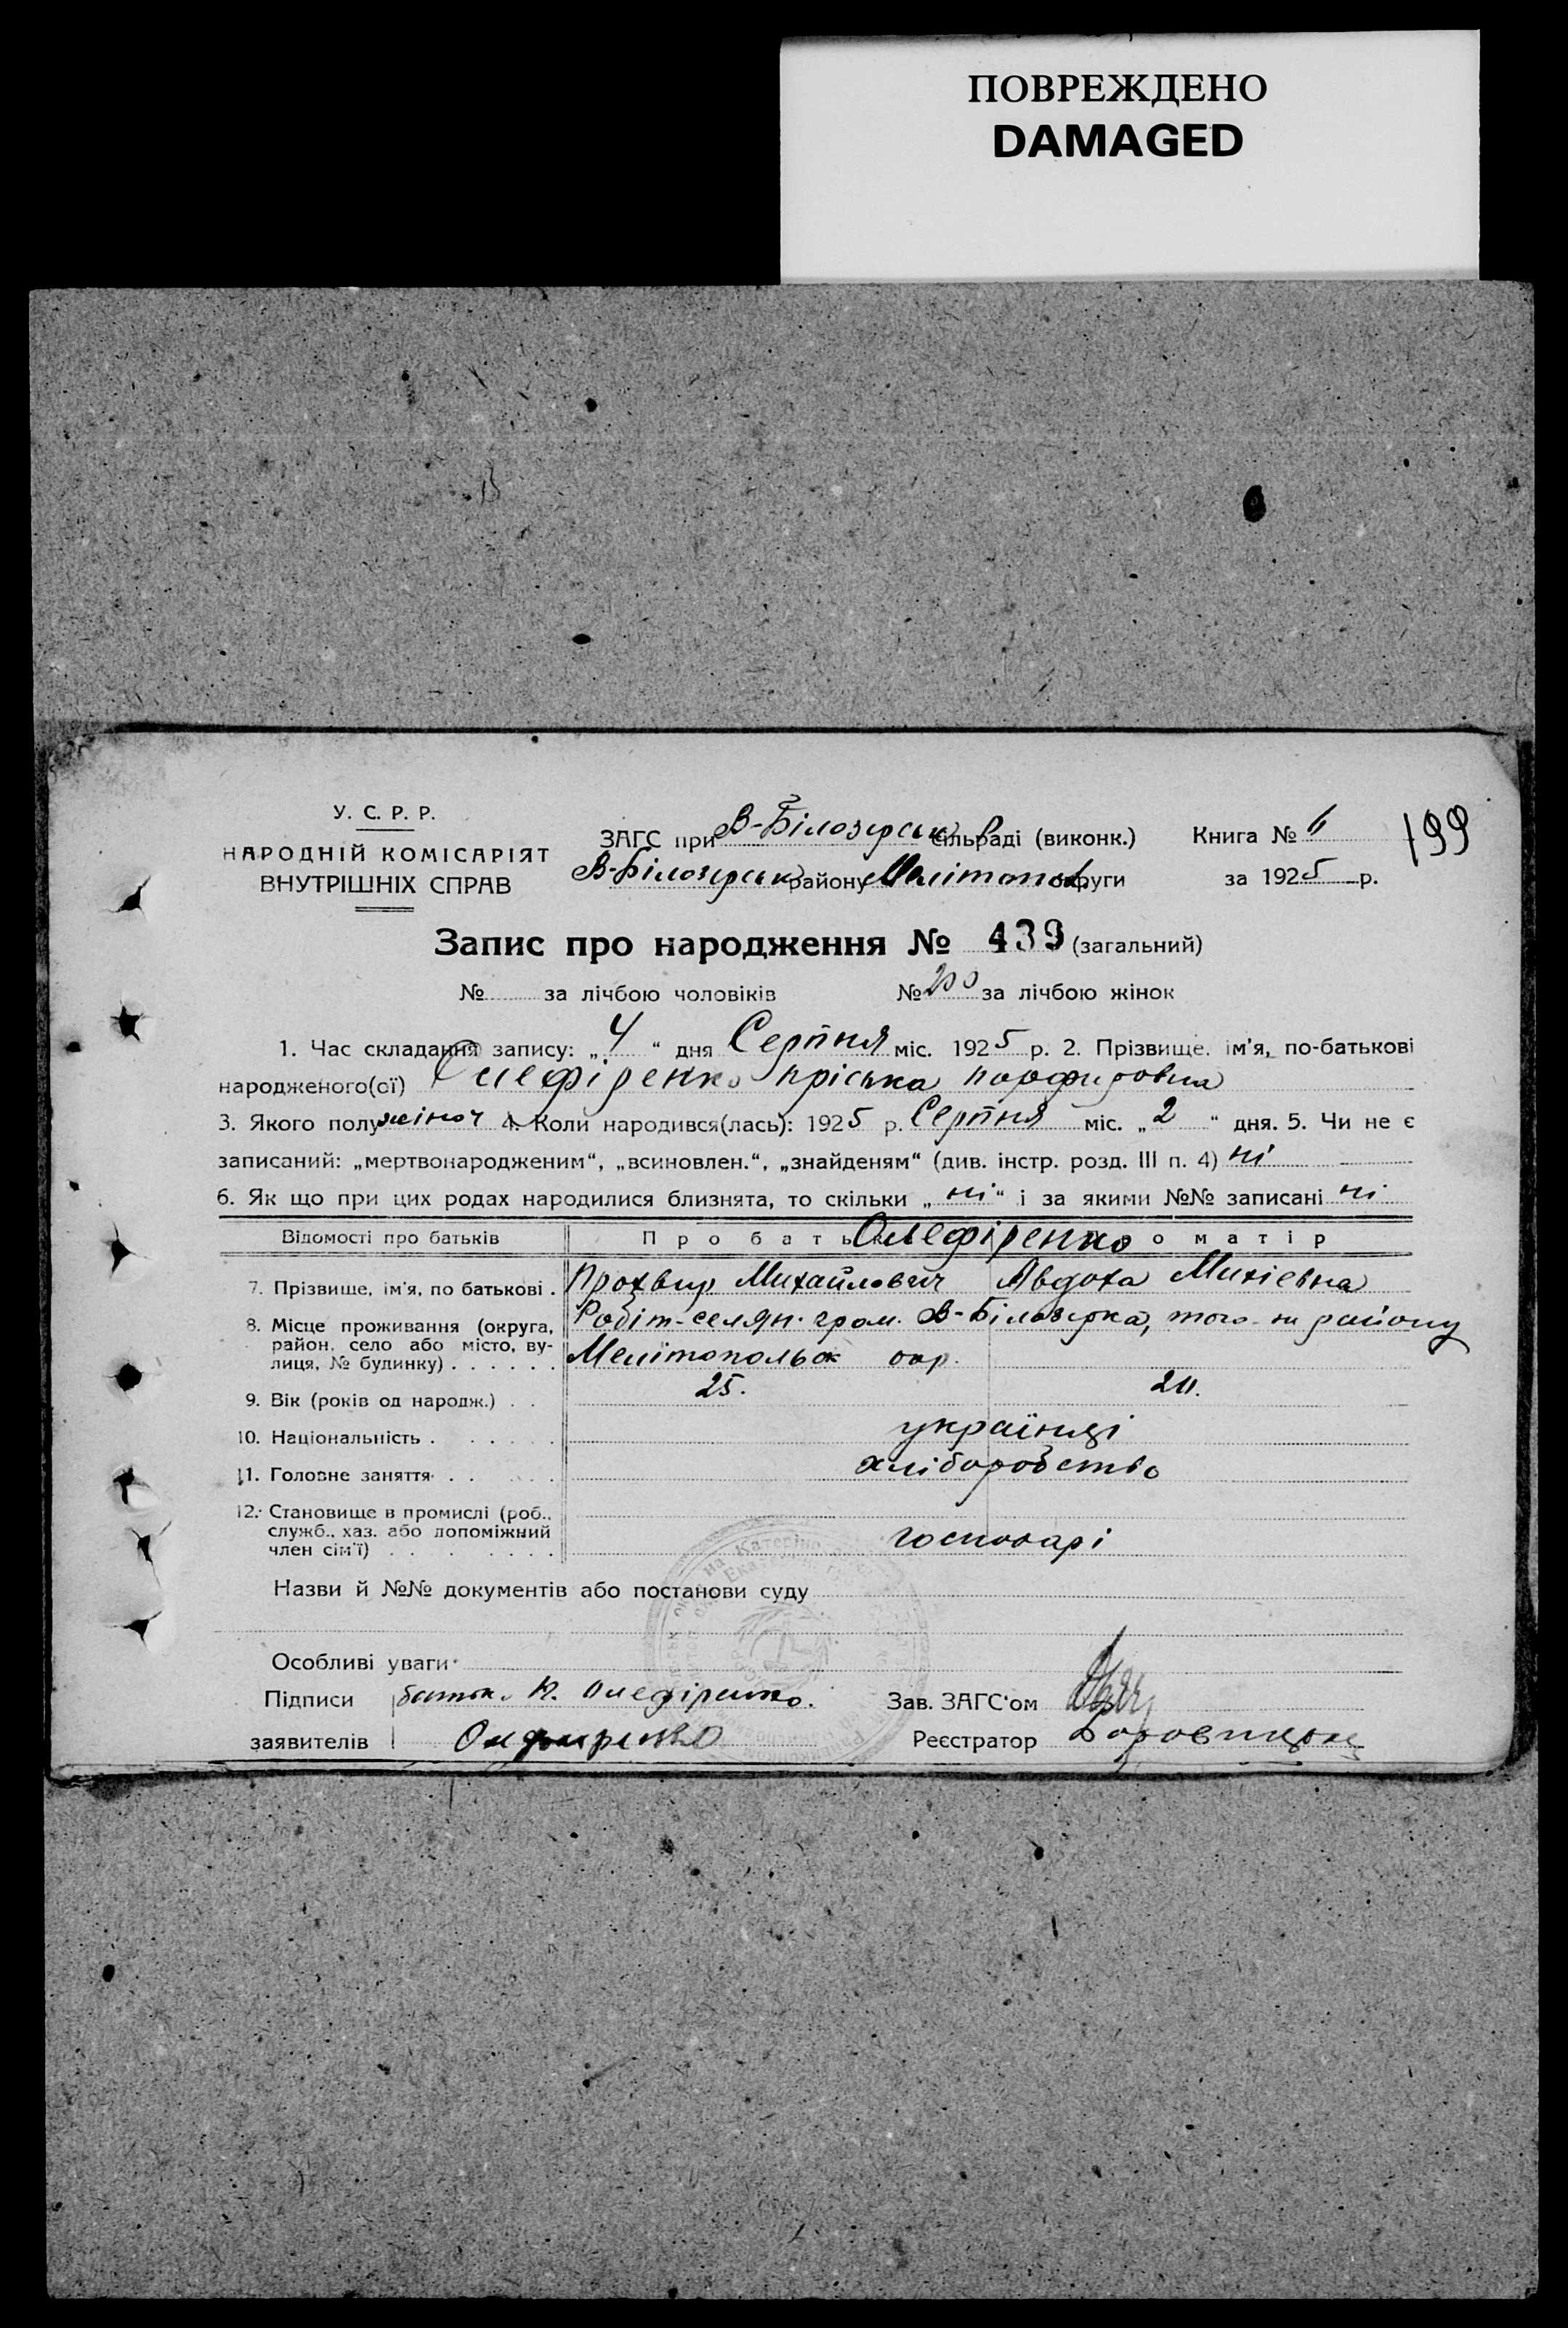 ПОВРЕЖДЕНО
DAMAGED
У. С. Р. Р.
НАРОДНІЙ КОМІСАРІЯТ
ВНУТРІШНІХ СПРАВ
ЗАГС при В-Білозерськ сільраді (виконк.)
В-Білозерськ району Мелітопол. округи
Книга № 6
за 1925 р.
199
Запис про народження № 439 (загальний)
№ за лічбою чоловіків № 200 за лічбою жінок
1. Час складання запису: „4“ дня Серпня міс. 1925 р. 2. Прізвище. ім'я, по-батькові
народженого(ої) Олефіренко Пріська Порфировна
3. Якого полу жіноч 4. Коли народився(лась): 1925 р. Серпня міс. „2“ дня. 5. Чи не є
записаний: „мертвонародженим“, „всиновлен.“, „знайденям“ (див. інстр. розд. III п. 4) ні
6. Як що при цих родах народилися близнята, то скільки „ні“ і за якими №№ записані ні
Відомості про батьків Про бать Олефіренко о матір
7. Прізвище, ім'я, по батькові . Прохвир Михайлович Авдоха Михіевна
8. Місце проживання (округа, район, село або місто, вулиця, № будинку) . . . . . . Робіт-селян. гром. В-Білозірка, того-ж району
Мелітопольск окр.
9. Вік (років од народж.) . . 25. 20.
10. Національність . . . . . . українці
11. Головне заняття . . . . . хліборобство
12. Становище в промислі (роб., служб., хаз. або допоміжний член сім'ї) . . . . . . . . господарі
Назви й №№ документів або постанови суду
Особливі уваги
Підписи батьк. П. Олефіренко.
заявителів
Зав. ЗАГС'ом
Реєстратор